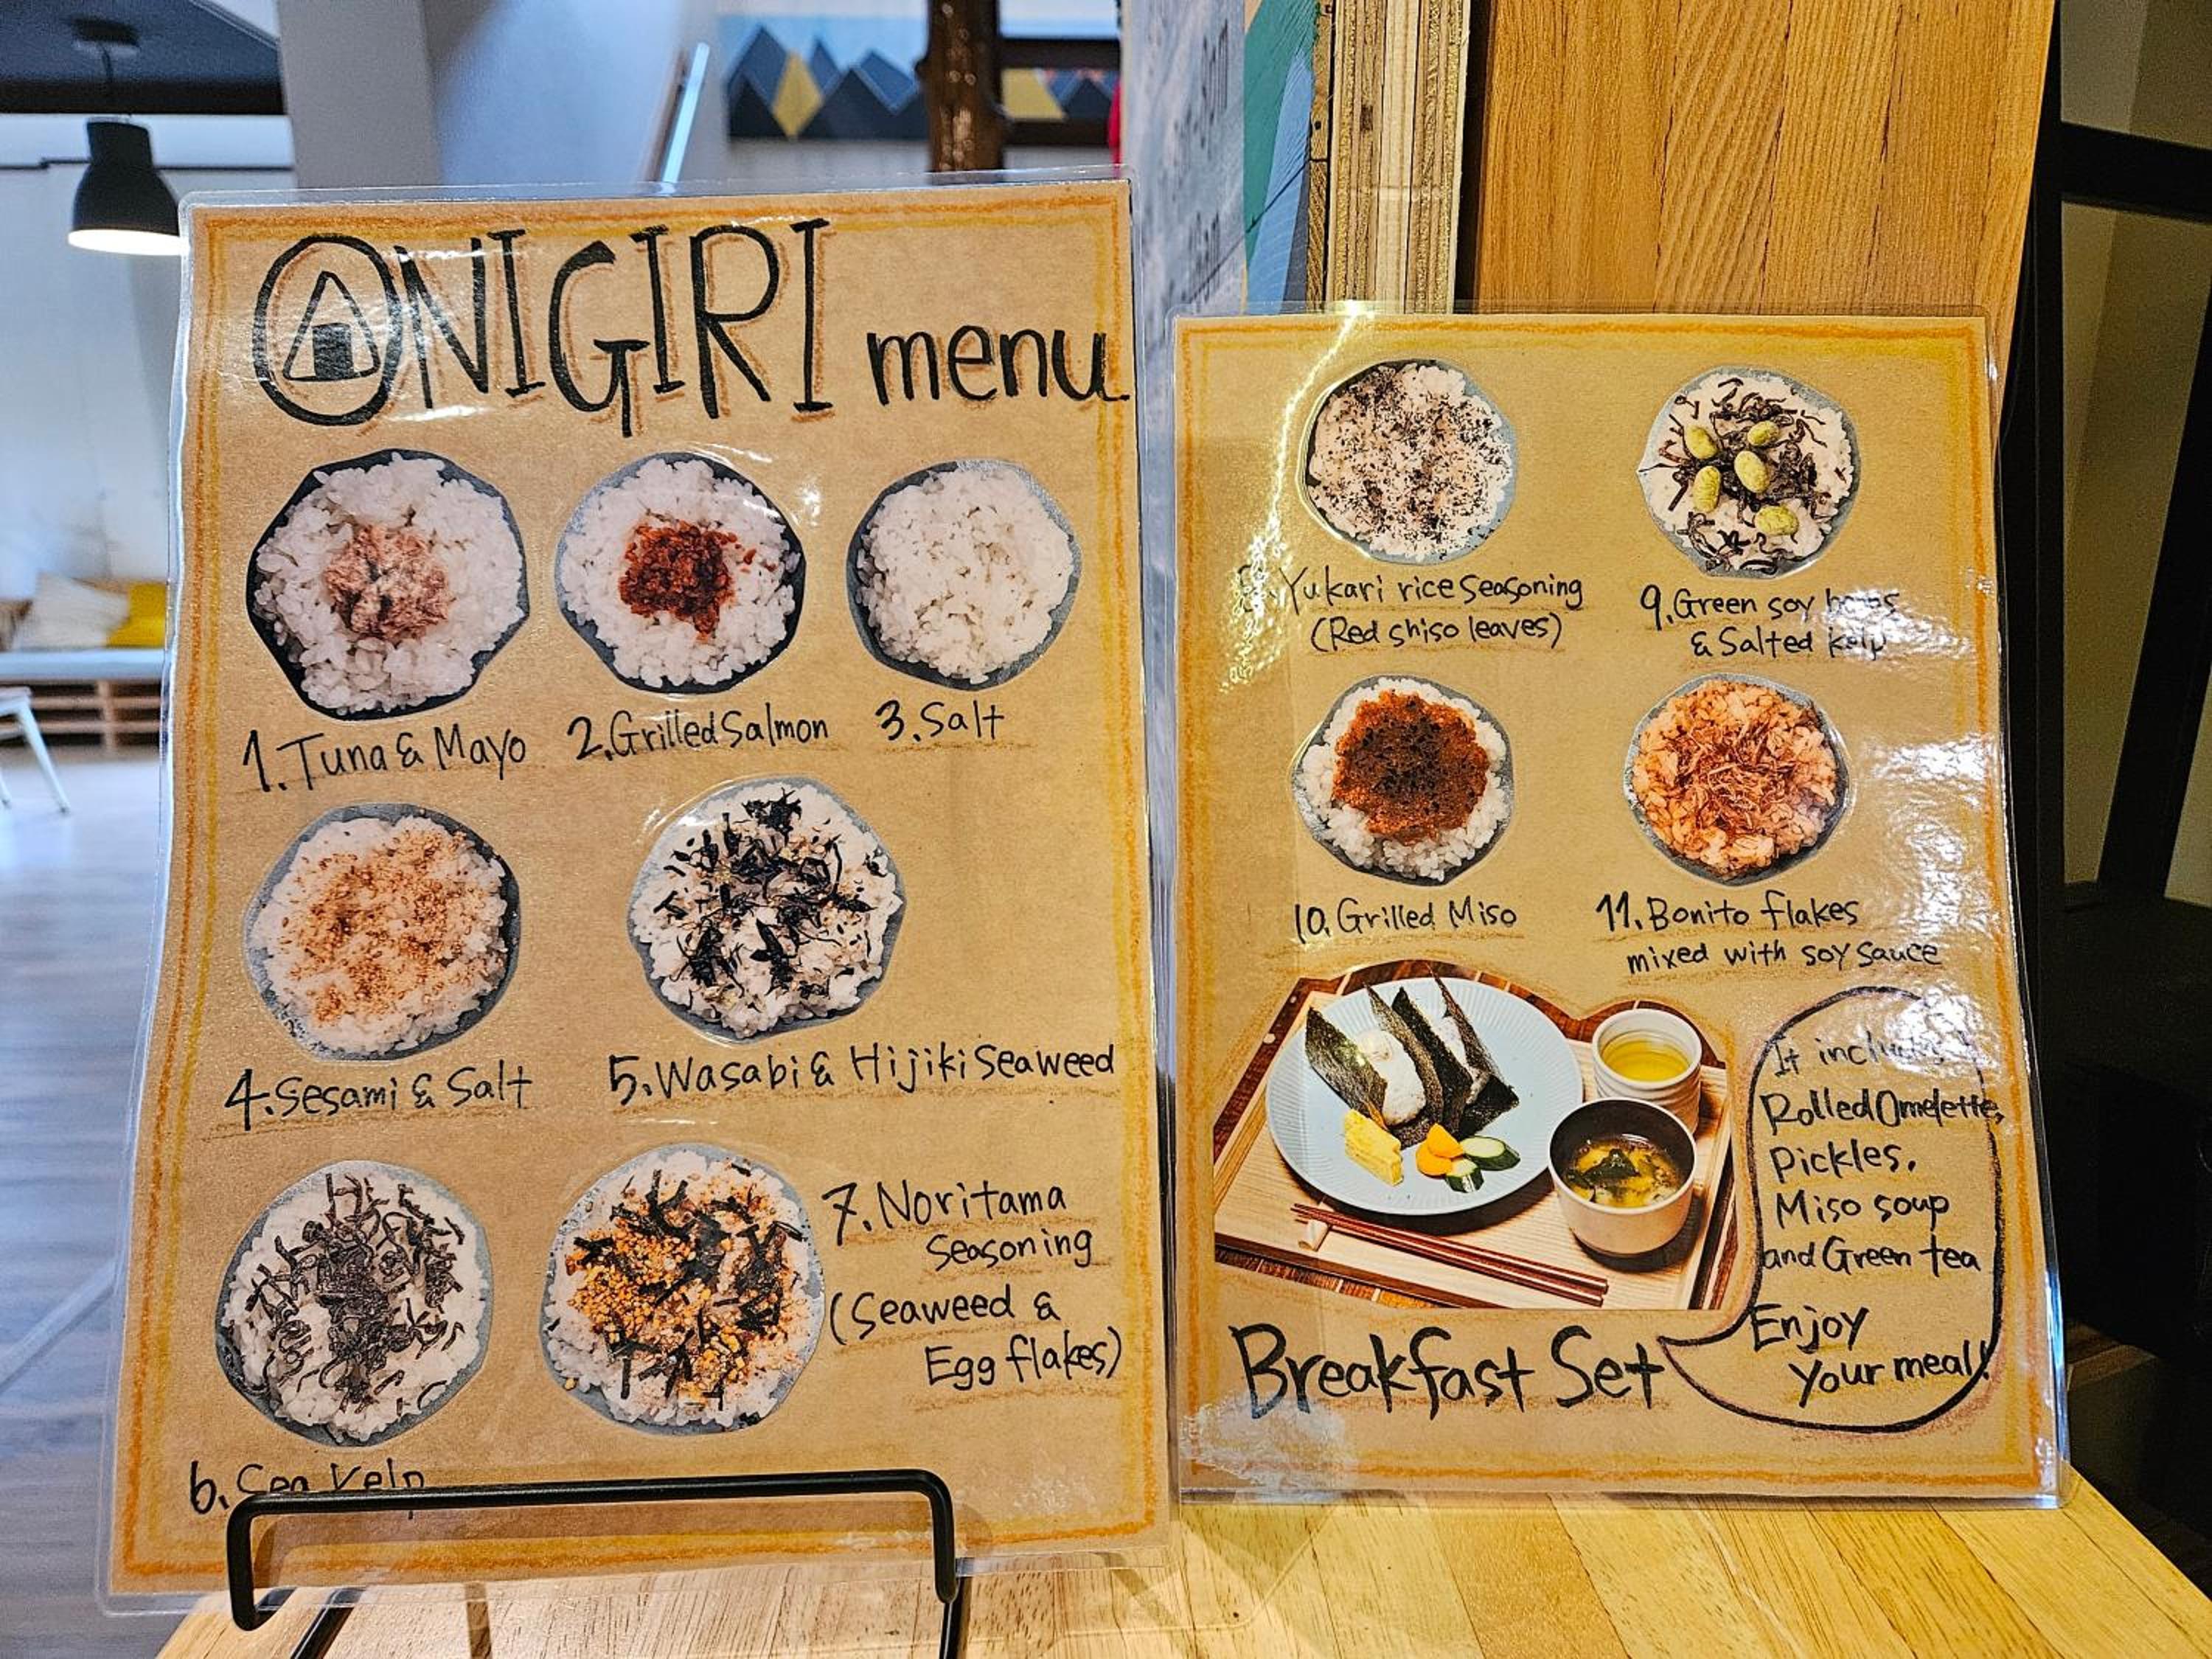 ONIGIRI menu
1. Tuna & Mayo
2. Grilled Salmon
3. Salt
4. Sesami & Salt
5. Wasabi & Hijiki Seaweed
6. Sea Kelp
7. Noritama
Seasoning
(Seaweed &
Egg flakes)
Yukari rice seasoning
(Red shiso leaves)
9. Green soy
& Salted kelp
10. Grilled Miso
11. Bonito flakes
mixed with soy sauce
It includes
Rolled Omelette,
Pickles,
Miso soup
and Green tea
Enjoy
Your meal!
Breakfast Set